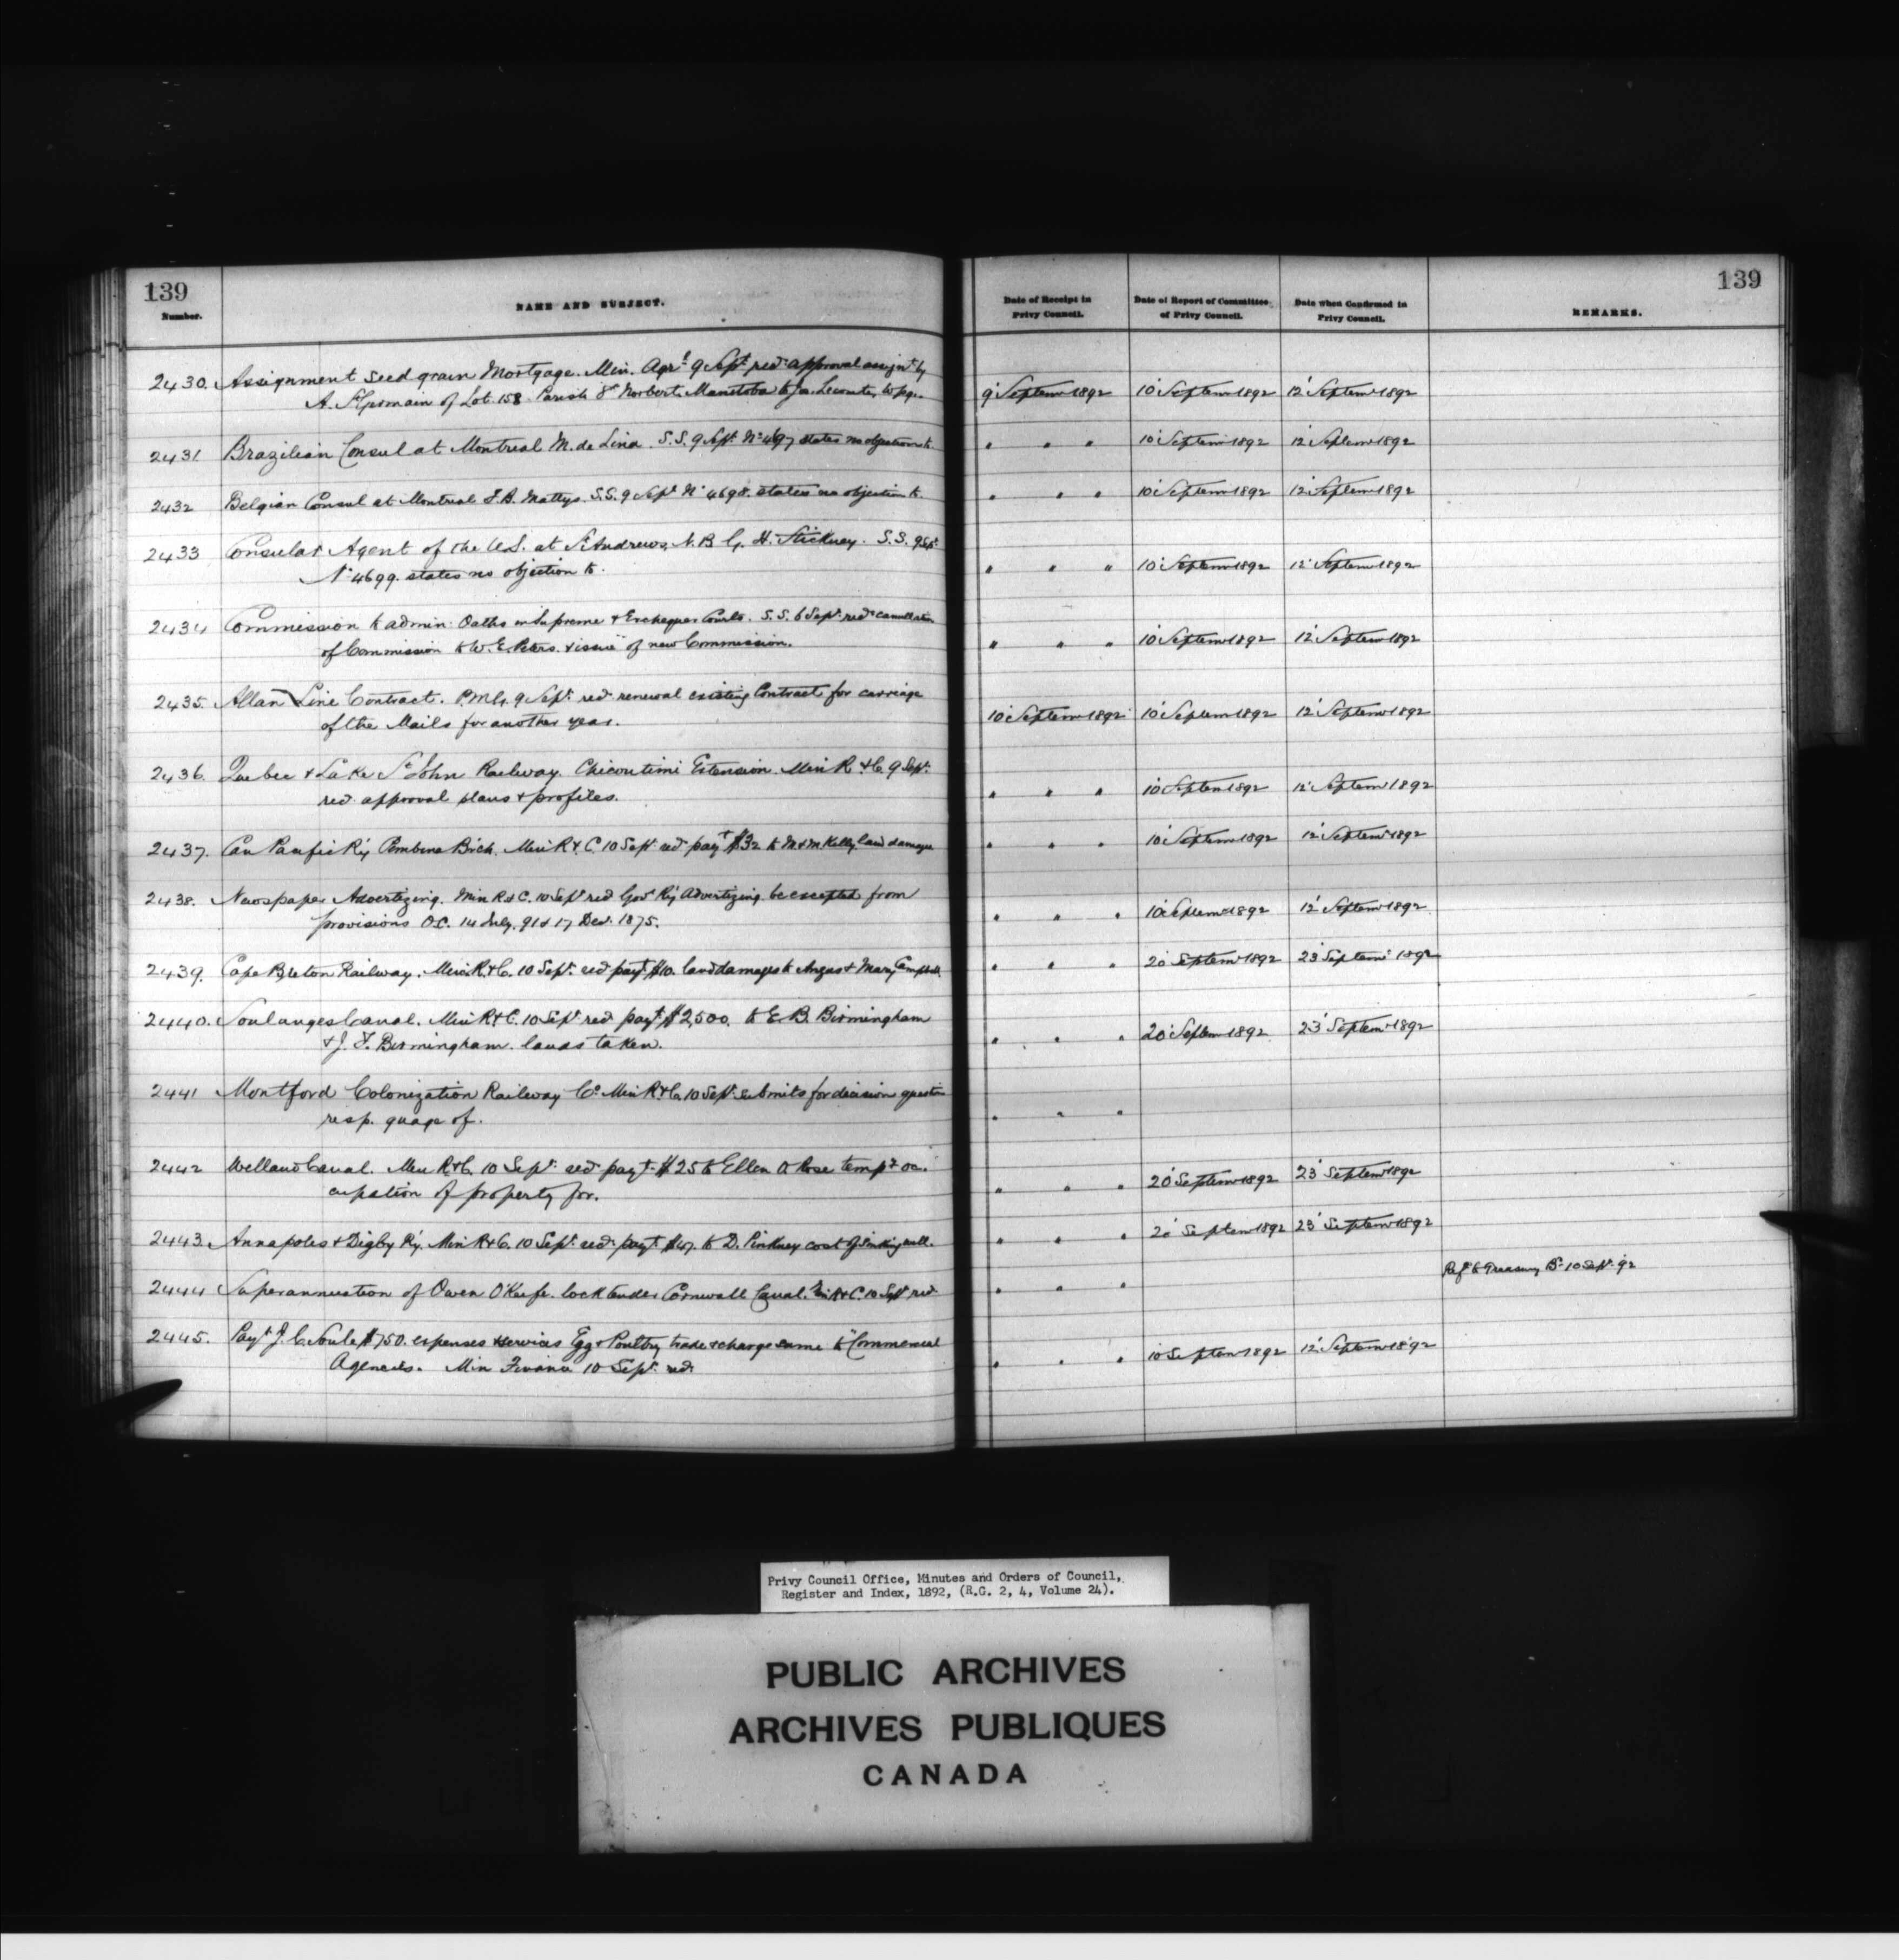 139
139
Number.
NAME AND SUBJECT.
Date of Receipt in Privy Council.
Date of Report of Committee of Privy Council.
Date when Confirmed in Privy Council.
REMARKS.
2430. Assignment Seed grain Mortgage. Min. Agrt 9 Sept recd approval assignt by
A. St Germain of Lot 158 Parish St Norbert Manitoba to Jos. Lecomte,
9' Septem 1892 10' Septem 1892 12' Septem 1892
2431 Brazilian Consul at Montreal M. de Lina. S.S. 9 Sept No 4697 states no objection to
" " " 10' Septem 1892 12' Septem 1892
2432 Belgian Consul at Montreal F.B. Mattys. S.S. 9 Sept No 4698. states no objection to.
" " " 10' Septem 1892 12' Septem 1892
2433 Consular Agent of the U.S. at St Andrews, N.B. G. H. Stickney. S.S. 9 Sept
No 4699. states no objection to.
" " " 10' Septem 1892 12' Septem 1892
2434 Commission to admin. Oaths in Supreme & Exchequer Courts. S.S. 6 Sept recd cancellation
of Commission to W. E. Peters. & issue of new Commission.
" " " 10' Septem 1892 12' Septem 1892
2435. Allan Line Contract. P.M.G. 9 Sept. recd renewal existing Contract for carriage
of the Mails for another year.
10' Septem 1892 10' Septem 1892 12' Septem 1892
2436. Quebec & Lake St John Railway. Chicoutimi Extension. Min R. & C. 9 Sept.
recd approval plans & profiles.
" " " 10' Septem 1892 12' Septem 1892
2437. Can Pacific Ry Pembina Brch. Min R & C. 10 Sept recd payt $32 to M & M Kelly land damages
" " " 10' Septem 1892 12' Septem 1892
2438. Newspaper Advertizing. Min R & C. 10 Sept recd Govt Ry Advertizing be excepted from
provisions O.C. 14 July, 91 & 17 Dec. 1875.
" " " 10' Septem 1892 12' Septem 1892
2439. Cape Breton Railway. Min R. & C. 10 Sept. recd payt $10. land damages to Angus & Mary Campbell
" " " 20' Septem 1892 23' Septem 1892
2440. Soulanges Canal. Min R & C. 10 Sept. recd payt $2,500. to E. B. Birmingham
& J. F. Birmingham. lands taken.
" " " 20' Septem 1892 23' Septem 1892
2441 Montford Colonization Railway Co. Min R & C. 10 Sept. submits for decision question
resp. guage of.
" " "
2442 Welland Canal. Min R. & C. 10 Sept. recd payt $25 to Ellen A Rose tempy oc-
cupation of property for.
" " " 20' Septem 1892 23' Septem 1892
2443. Annapolis & Digby Ry. Min R & C. 10 Sept. recd payt $47. to D. Pinkney cost of sinking well.
" " " 20' Septem 1892 23' Septem 1892
2444 Superannuation of Owen O'Keefe. lock tender Cornwall Canal. Min R & C. 10 Sept recd
" " " Refd to Treasury Bd 10 Sept. 92
2445. Payt J. C. Soule $750. expenses & services Egg & Poultry trade & charge same to "Commercial
Agencies. Min Finance 10 Sept. recd
" " " 10 Septem 1892 12' Septem 1892
Privy Council Office, Minutes and Orders of Council,
Register and Index, 1892, (R.G. 2, 4, Volume 24).
PUBLIC ARCHIVES
ARCHIVES PUBLIQUES
CANADA